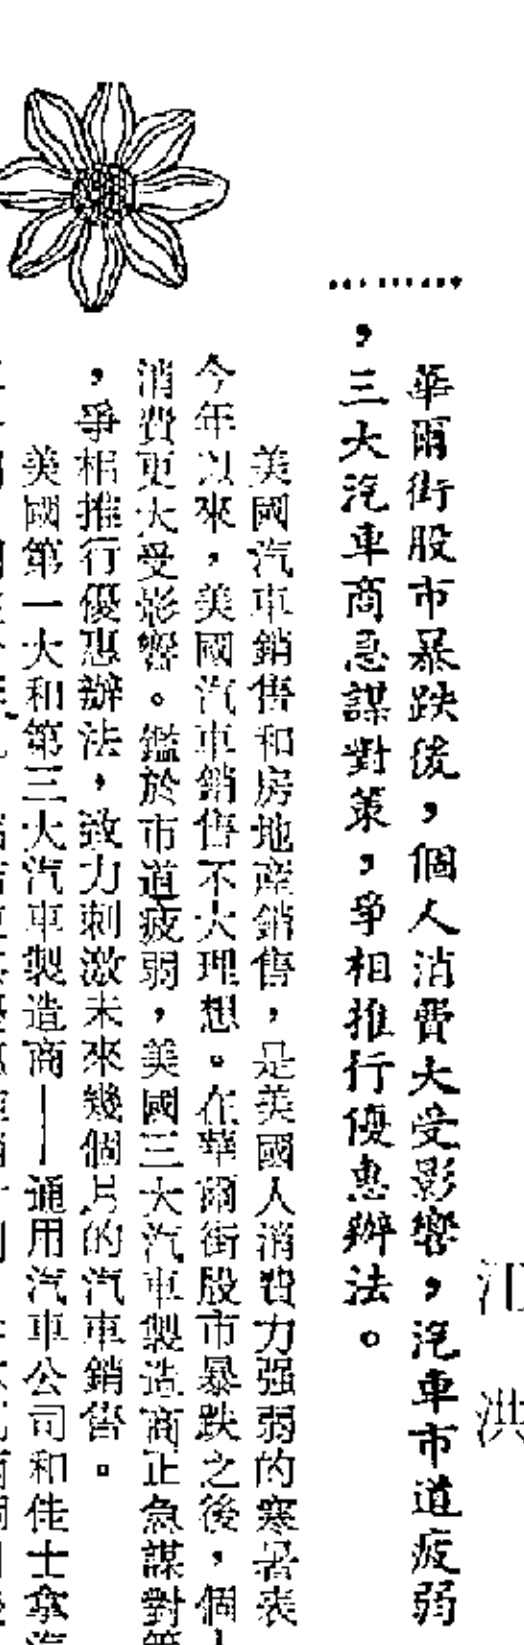 洪
華爾街股市暴跌後，個人消費大受影響，汽車市道疲弱
，三大汽車商急謀對策，爭相推行優惠辦法。
美國汽車銷售和房地產銷售，是美國人消費力强弱的寒暑表
今年以來，美國汽車銷售不大理想。在華爾街股市暴跌之後，個
消費更大受影響。鑑於市道疲弱，美國三大汽車製造商正急謀對
，爭相推行優惠辦法，致力刺激未來幾個月的汽車銷售。
美國第一大和第三大汽車製造商——通用汽車公司和佳士拿汽